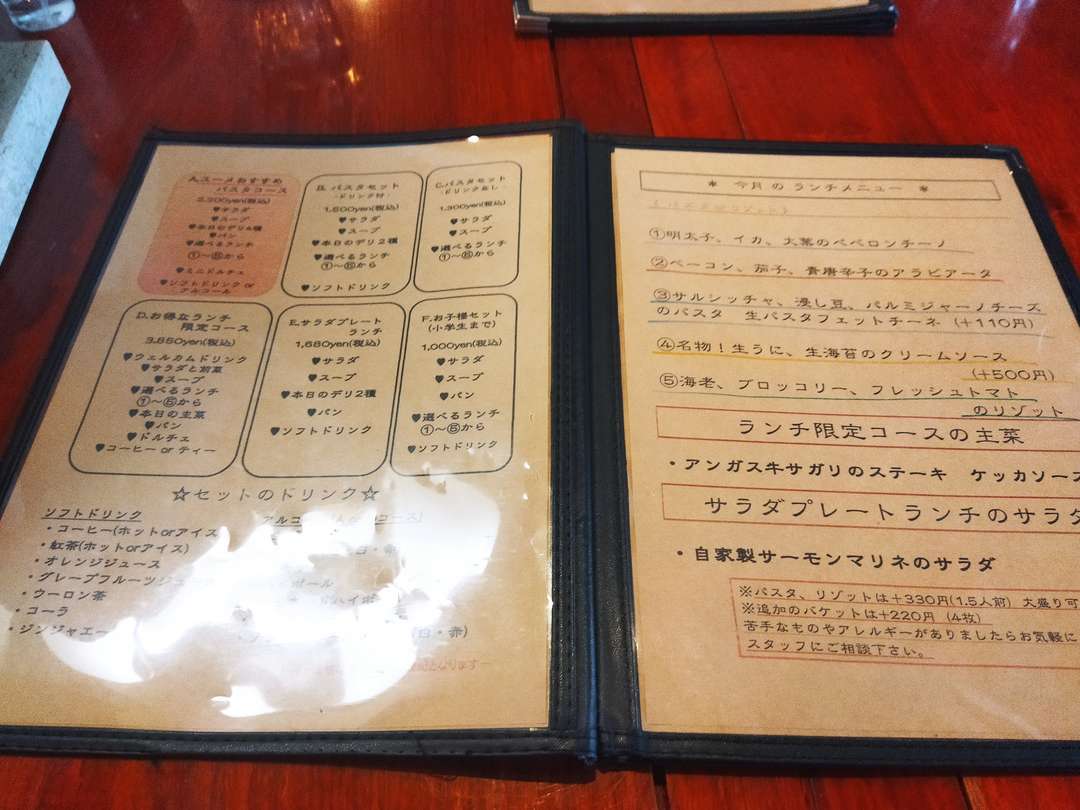 A.スーメおすすめ
パスタコース
2,300yen(税込)
♥サラダ
♥スープ
♥本日のデリ4種
♥パン
♥選べるランチ
①～⑤から
♥ミニドルチェ
♥ソフトドリンク or
アルコール
B. パスタセット
-ドリンク付-
1,500yen(税込)
♥サラダ
♥スープ
♥本日のデリ2種
♥選べるランチ
①～⑤から
♥ソフトドリンク
C.パスタセット
-ドリンク無し-
1,300yen(税込)
♥サラダ
♥スープ
♥選べるランチ
①～⑤から
D.お得なランチ
限定コース
3,850yen(税込)
♥ウェルカムドリンク
♥サラダと前菜
♥スープ
♥選べるランチ
①～⑤から
♥本日の主菜
♥パン
♥ドルチェ
♥コーヒー or ティー
E.サラダプレート
ランチ
1,680yen(税込)
♥サラダ
♥スープ
♥本日のデリ2種
♥パン
♥ソフトドリンク
F.お子様セット
(小学生まで)
1,000yen(税込)
♥サラダ
♥スープ
♥パン
♥選べるランチ
①～⑤から
♥ソフトドリンク
☆セットのドリンク☆
ソフトドリンク
・コーヒー(ホットorアイス
・紅茶(ホットorアイス)
・オレンジジュース
・グレープフルーツジュ
・ウーロン茶
・コーラ
・ジンジャエー
(白・赤)
＊ 今月のランチメニュー ＊
①明太子、イカ、大葉のペペロンチーノ
②ベーコン、茄子、青唐辛子のアラビアータ
③サルシッチャ、浸し豆、パルミジャーノチーズ
のパスタ 生パスタフェットチーネ (+110円)
④名物！生うに、生海苔のクリームソース
(+500円)
⑤海老、ブロッコリー、フレッシュトマト
のリゾット
ランチ限定コースの主菜
・アンガス牛サガリのステーキ ケッカソース
サラダプレートランチのサラダ
・自家製サーモンマリネのサラダ
※パスタ、リゾットは+330円(1.5人前) 大盛り可
※追加のバケットは+220円 (4枚)
苦手なものやアレルギーがありましたらお気軽に
スタッフにご相談下さい。